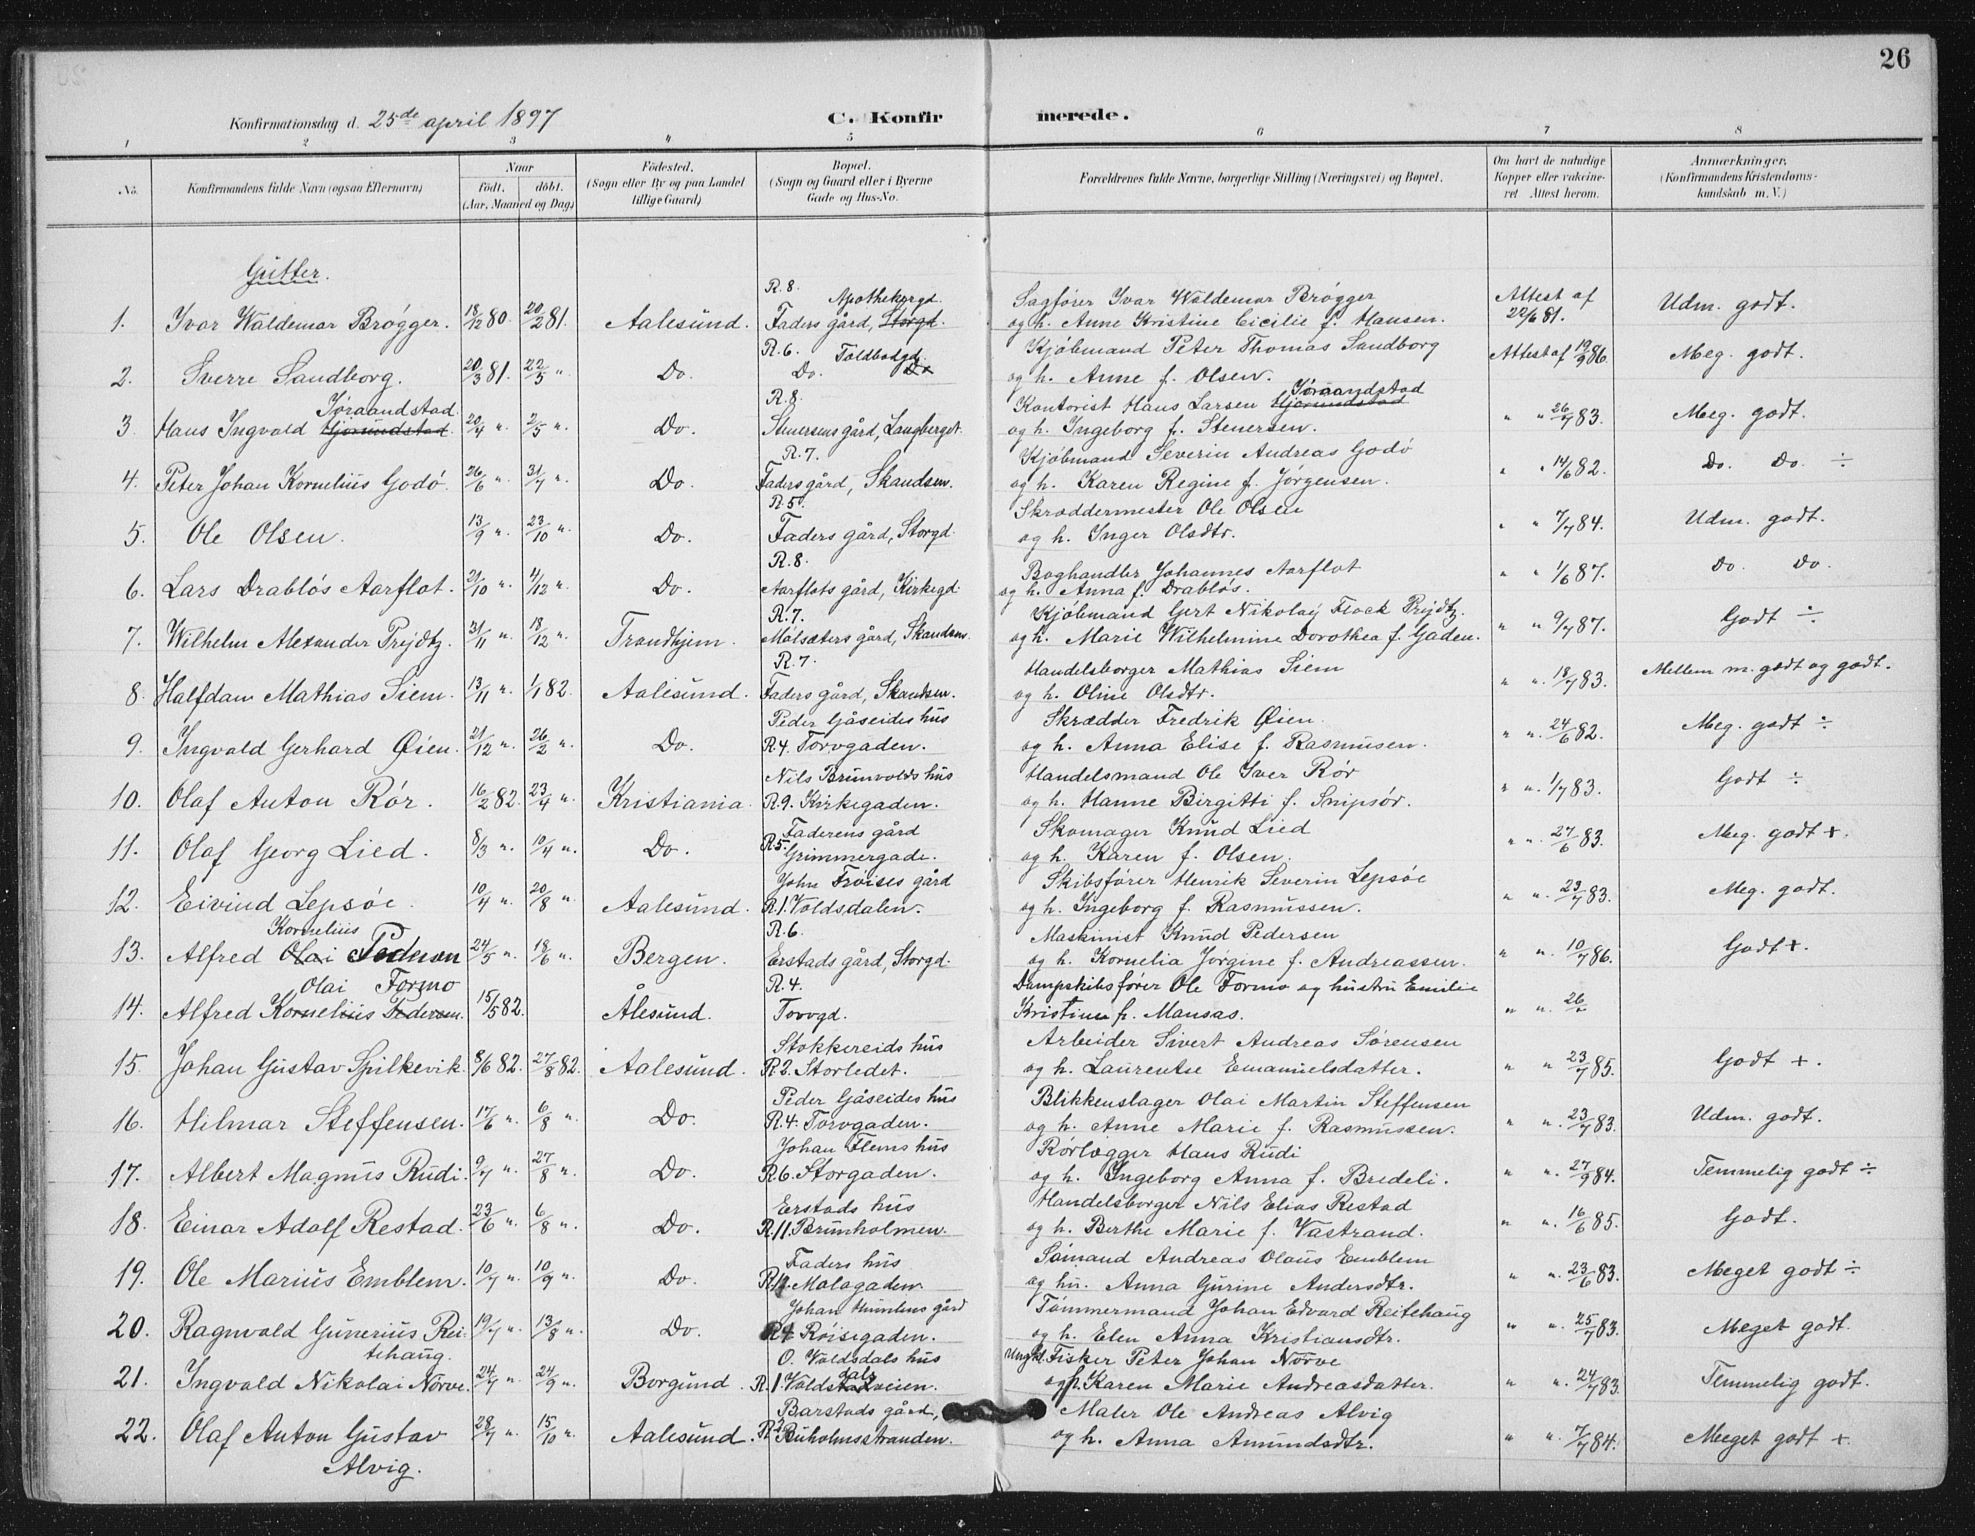 26
Konfirmationsdag d. 25de april 1897
C. Konfirmerede.
1 2 3 " 5 6 7 8
No. Konfirmandens fulde Navn (ogsaa Efternavn) Naar født. døbt. (Aar, Maaned og Dag) Fødested. (Sogn eller By og paa Landet tillige Gaard) Bopæl. (Sogn og Gaard eller i Byerne Gade og Hus-No. Forældrenes fulde Navne, borgerlige Stilling (Næringsvei) og Bopæl. Om havt de naturlige Kopper eller vakcineret Attest herom. Anmærkninger. (Konfirmandens Kristendomskundskab m. V.)
Gutter.
1. Ivar Waldemar Brøgger. 18/12 80. 20/2 81. Aalesund. R. 8. Faders gård, Storgd. Apothekergd. Sagfører Ivar Waldemar Brøgger og h. Anne Kristine Cicilie f. Hansen. Attest af 22/6 81. Udm. godt.
2. Sverre Sandborg. 20/3 81. 22/5 " Do. R. 6. Do. Do Toldbodgd. Kjøbmand Peter Thomas Sandborg og h. Anne f. Olsen. Attest af 19/9 86. Meg. godt.
3. Hans Ingvald Hjorundstad Jøraandstad. 20/4 ". 2/5 ". Do. R. 8. Stenersens gård, Langberget. Kontorist Hans Larsen Hjorundstad Jøraandstad og h. Ingeborg f. Stenersen. " " 26/7 83. Meg. godt.
4. Peter Johan Kornelius Godø. 26/6 ". 31/7 ". Do. R. 7. Faders gård, Skandsen. Kjøbmand Severin Andreas Godø og h. Karen Regine f. Jørgensen. " " 14/6 82. Do. Do. ÷
5. Ole Olsen. 13/9 ". 23/10 ". Do. R. 5. Faders gård, Storgd. Skræddermester Ole Olsen og h. Inger Olsdtr. " " 7/7 84. Udm. godt.
6. Lars Drabløs Aarflot. 21/10 ". 4/12 ". Do. R. 8. Aarflots gård, Kirkegd. Boghandler Johannes Aarflot og h. Anna f. Drabløs. " " 1/6 87. Do. Do.
7. Wilhelm Alexander Preÿdtz. 31/11 ". 18/12 ". Trondhjem. R. 7. Molsæters gård, Skandsen. Kjøbmand Gert Nikolaÿ Flock Preÿdtz. og h. Marie Wilhelmine Dorothea f. Gaden. " " 9/7 87. Godt ÷
8. Halfdan Mathias Siem. 13/11 ". 1/1 82. Aalesund. R. 7. Faders gård, Skandsen. Handelsborger Mathias Siem og h. Oline Olsdtr. " " 18/7 83. Mellem m. godt og godt.
9. Ingvald Gerhard Øien. 21/12 ". 26/2 ". Do. Peder Gåseides hus R. 4 Torvgaden. Skrædder Fredrik Øien. og h. Anna Elise f. Rasmusen. " " 24/6 82. Meg. godt ÷
10. Olaf Anton Rør. 16/2 82. 23/4 ". Kristiania. Nils Brunvolds hus R. 9. Kirkegaden. Handelsmand Ole Iver Rør og h. Hanne Birgitti f. Snipsør. " " 1/7 83. Godt ÷
11. Olaf Georg Lied. 8/3 ". 10/4 ". Do. Faderens gård R. 5. Grimmergade. Skomager Knud Lied og h. Karen f. Olsen. " " 27/6 83. Meg. godt +.
12. Eivind Lepsøe. 10/4 ". 20/8 ". Aalesund. John Frøises gård R. 1. Voldsdalen. Skibsfører Henrik Severin Lepsøe og h. Ingeborg f. Rasmussen. " " 23/7 83. Meg. godt.
13. Alfred Olai Kornelius Pedersen 24/5 ". 18/6 ". Bergen. R. 6. Erstads gård, Storgd. Maskinist Knud Pedersen og h. Kornelia Jørgine f. Andreassen. " " 10/7 86. Godt +.
14. Alfred Kornelius Pedersen. Olai Formo 15/5 82. Ålesund. R. 4. Torvgd. Dampskibsfører Ole Formo og hustru Emilie Kristine f. Mansas. " " 26/
15. Johan Gustav Spilkevik. 8/6 82. 27/8 82. Aalesund. Stokkereids hus R. 2. Storledet. Arbeider Sivert Andreas Sørensen og h. Laurentse Emanuelsdatter. " " 23/7 85. Godt +.
16. Hilmar Steffensen. 17/6 ". 6/8 ". Do. Peder Gåseides hus R. 4. Torvgaden. Blikkenslager Olai Martin Steffensen og h. Anne Marie f. Rasmussen. " " 23/7 83. Udm. godt.
17. Albert Magnus Rudi. 9/7 ". 27/8 ". Do. Johan Flems hus R. 6. Storgaden. Rørlægger Hans Rudi og h. Ingeborg Anna f. Bredeli. " " 27/9 84. Temmelig godt ÷
18. Einar Adolf Restad. 23/6 ". 6/8 ". Do. Erstads hus R. 11. Brunholmen. Handelsborger Nils Elias Restad og h. Berthe Marie f. Vastrand. " " 16/6 85. Godt.
19. Ole Marius Emblem. 10/7 ". 10/9 ". Do. Faders hus Molagaden. Sømand Andreas Olaus Emblem og hu. Anna Gurine Andersdtr. " " 23/6 83. Meget godt ÷
20. Ragnvald Gunerius Reitehaug. 19/7 ". 13/8 ". Do. Johan Humlens gård Røisegaden. Tømmermand Johan Edvard Reitehaug og h. Elen Anna Kristiansdtr. " " 25/7 83. Meget godt.
21. Ingvald Nikolai Nørve. 24/7 ". 24/9 ". Borgund. O. Voldsdals hus R. 1. Voldsdalsveien. Ungk. Fisker Peter Johan Nørve og p. Karen Marie Andreasdatter. " " 24/7 83. Temmelig godt.
22. Olaf Anton Gustav Alvig. 28/7 ". 15/10 ". Aalesund. Barstads gård, R. 2. Buholmsstranden. Maler Ole Andreas Alvig og h. Anna Amundsdtr. " " 7/7 84. Meget godt +.